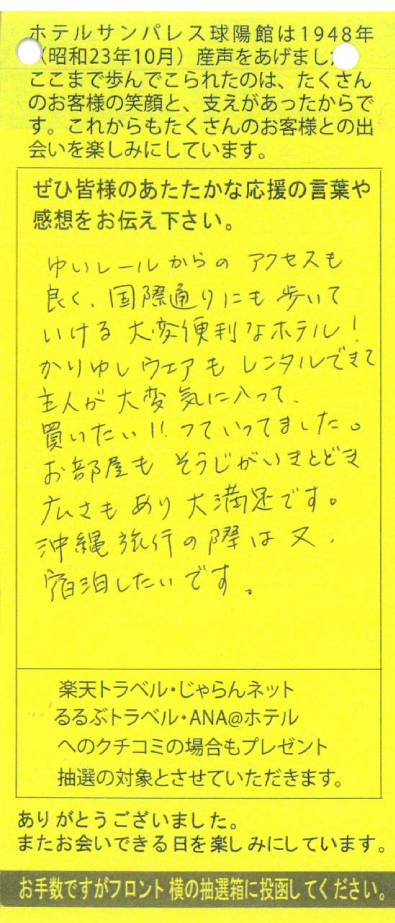 ホテルサンパレス球陽館は1948年
（昭和23年10月）産声をあげまし
ここまで歩んでこられたのは、たくさん
のお客様の笑顔と、支えがあったからで
す。これからもたくさんのお客様との出
会いを楽しみにしています。
ぜひ皆様のあたたかな応援の言葉や
感想をお伝え下さい。
ゆいレールからの アクセスも
良く、国際通りにも歩いて
いける 大変便利なホテル！
かりゆしウェアも レンタルできて
主人が 大変 気に入って、
買いたい！！っていってました。
お部屋も そうじがいきとどき
広さもあり 大満足です。
沖縄旅行の際は又、
宿泊したいです。
楽天トラベル・じゃらんネット
るるぶトラベル・ANA@ホテル
へのクチコミの場合もプレゼント
抽選の対象とさせていただきます。
ありがとうございました。
またお会いできる日を楽しみにしています。
お手数ですがフロント横の抽選箱に投函してください。